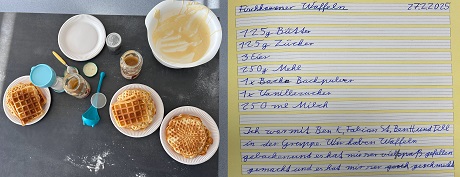 Finkhausener Waffeln 27.2.2025
125g Butter
125g Zucker
3 Eier
250g Mehl
1x Backpulver
1x Vanillezucker
250 ml Milch
Ich war mit Ben t, Fabian St, Bent und Till
in der Gruppe. Wir haben Waffeln
gebacken und es hat mir viel spaß
gemacht und es hat mir geschmeckt